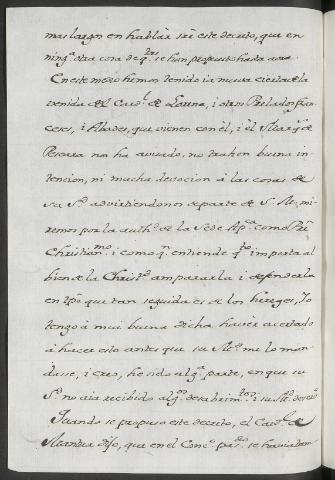 mas largo en hablar sre este decreto, que en
ning.ª otra cosa de q.tas se han propuesto hasta aora.
En este medio hemos tenido la nueva cierta de la
venida del Card.l de Lorena, i otros Prelados fran
ceses, i Abades, que vienen con él, i el Marq.s de
Pescara nos ha avisado, no trahen buena in
tencion, ni mucha devocion á las cosas de
su S.d advirtiendonos de parte de S. M. mi
remos por la auth.d de la Sede Ap.ca como Prí
Christian.mo i como q.n entiende q.to importa al
bien de la Christ.d ampararla i defenderla
en tpo que tan seguida es de los hereges, Yo
tengo á mui buena dicha haver acertado
á hacer esto antes que su M.d me lo man
dasse, i creo, he sido alg.ª parte, en que su
S.d no aia recibido alg.s desabrim.tos i su M.d deserv.º
Quando se propuso este decreto, el Card.l de
Mantua dijo, que en el Conc.º pas.do se havia tam